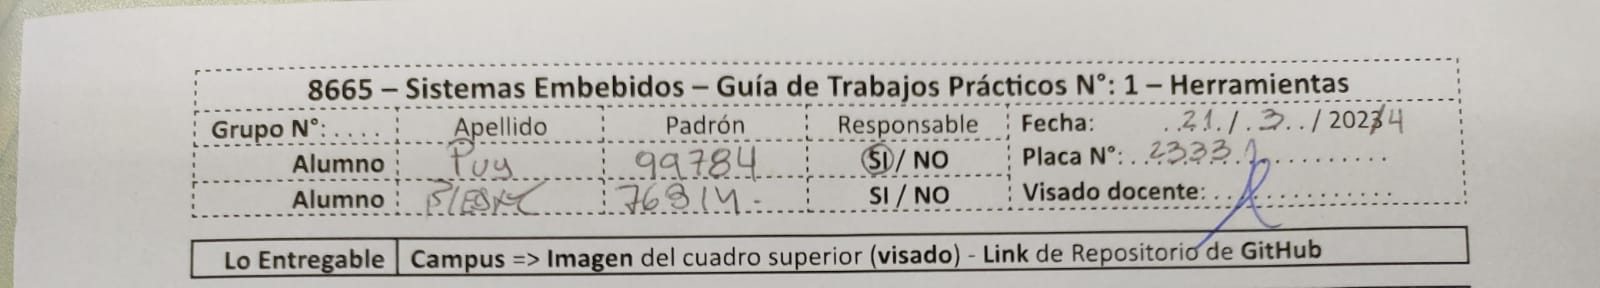 8665 – Sistemas Embebidos – Guía de Trabajos Prácticos N°: 1 – Herramientas
Grupo N°: .... Apellido Padrón Responsable Fecha: ..21./.3../2023/4
Alumno Puy 99784 SI / NO Placa N°: ..2333.........
Alumno SI / NO Visado docente: ................
Lo Entregable Campus => Imagen del cuadro superior (visado) - Link de Repositorio de GitHub